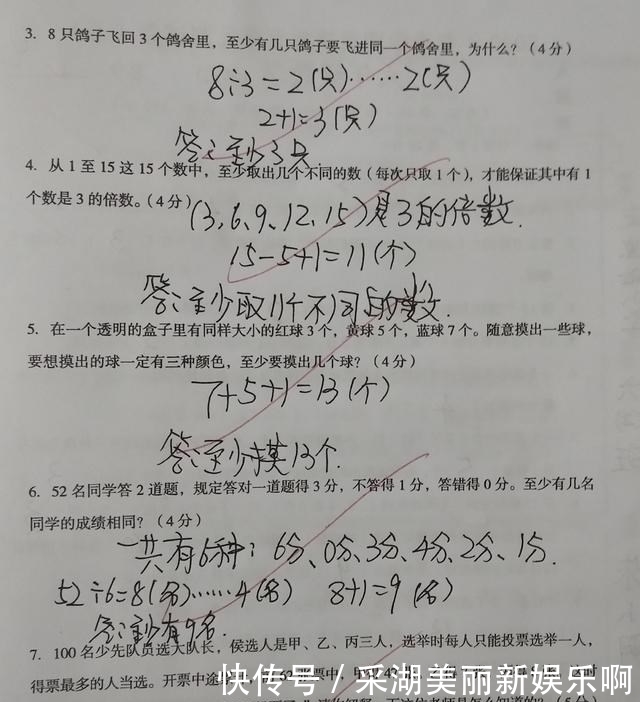 3. 8只鸽子飞回3个鸽舍里，至少有几只鸽子要飞进同一个鸽舍里，为什么？（4分）
8÷3=2(只)……2(只)
2+1=3(只)
答：至少3只.
4. 从1至15这15个数中，至少取出几个不同的数（每次只取1个），才能保证其中有1
个数是3的倍数。（4分）
(3、6、9、12、15)是3的倍数.
15-5+1=11(个)
答：至少取11个不同的数.
5. 在一个透明的盒子里有同样大小的红球3个，黄球5个，蓝球7个。随意摸出一些球，
要想摸出的球一定有三种颜色，至少要摸出几个球？（4分）
7+5+1=13(个)
答：至少摸13个.
6. 52名同学答2道题，规定答对一道题得3分，不答得1分，答错得0分。至少有几名
同学的成绩相同？（4分）
一共有6种：6分、0分、3分、4分、2分、1分.
52÷6=8(名)……4(名) 8+1=9(名)
答：至少有9名.
7. 100名少先队员选大队长，侯选人是甲、乙、丙三人，选举时每人只能投票选举一人，
得票最多的人当选。开票中途
快传号/采湖美丽新娱乐啊